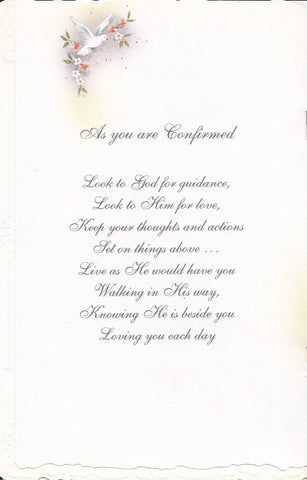 As you are Confirmed
Look to God for guidance,
Look to Him for love,
Keep your thoughts and actions
Set on things above ...
Live as He would have you
Walking in His way,
Knowing He is beside you
Loving you each day